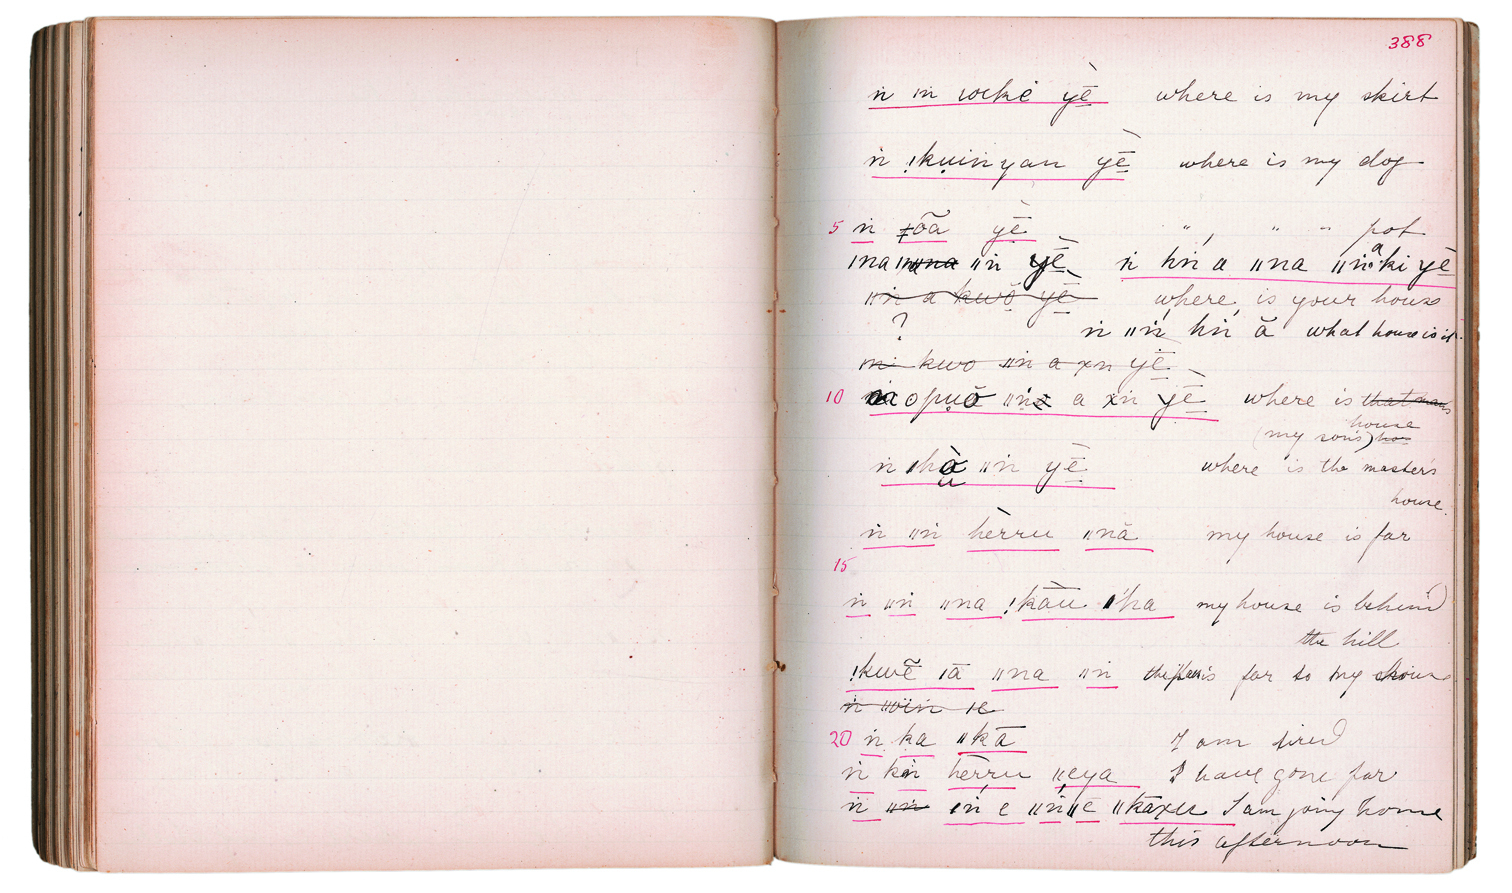 388
ṅ ıṅ ıockė yḕ where is my skirt
ṅ !kụiṅyau yḕ where is my dog
5 ṅ ǂõā yḕ " " " pot
ına ǁṅ yḕ ṅ hṅ a ǁna ǁṅ a ki yḕ
ǁṅ a kwŏ yē where is your house
? ṅ ǁṅ hṅ ă what house is it
kwo ǁṅ a xn yē
10 opụŏ ǁṅ a xṅ yḕ where is that man's
house
(my son's)
ṅ ǁṅ yḕ where is the master's
house.
ṅ ǁṅ hèrru ǁnă my house is far
15
ṅ ǁṅ ǁna !kāu ı'ha my house is behind
the hill
!kwẽ ıā ǁna ǁṅ is far to my house
20 ṅ ka ǁkā I am tired
ṅ kṅ hèrru ǁeya I have gone far
ṅ ǁṅ ıṅ e ǁṅ ǁē ǁkāxu I am going home
this afternoon